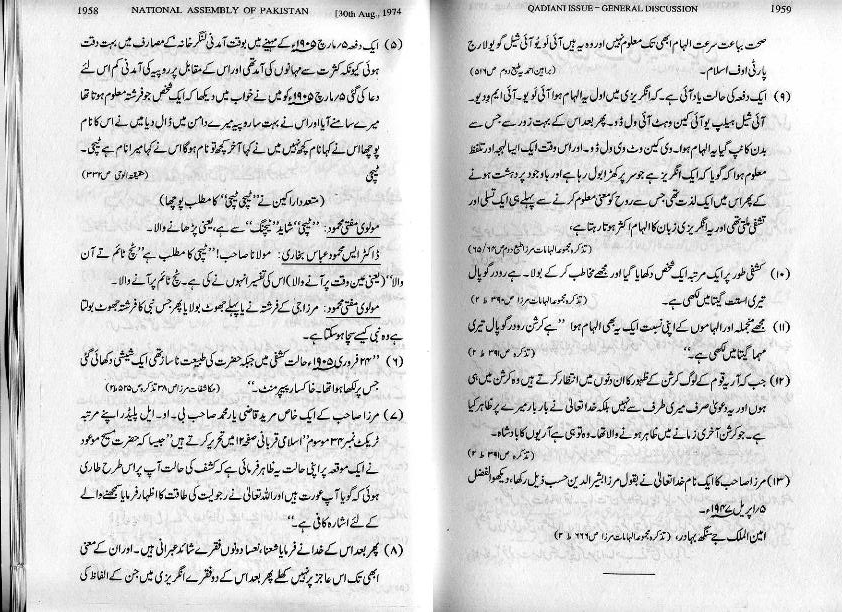 1958 NATIONAL ASSEMBLY OF PAKISTAN [30th Aug., 1974
(۵) ایک دفعہ ۵؍مارچ ۱۹۰۵ء کے مہینے میں بوقت آمدنی لنگر خانہ کے مصارف میں بہت دقت
ہوئی کیونکہ کثرت سے مہمانوں کی آمد تھی اور اس کے مقابل پر روپیہ کی آمدنی کم اس لئے
دعا کی گئی ۵؍مارچ ۱۹۰۵ء کو میں نے خواب میں دیکھا کہ ایک شخص جو فرشتہ معلوم ہوتا تھا
میرے سامنے آیا اور اس نے بہت سا روپیہ میرے دامن میں ڈال دیا میں نے اس کا نام
پوچھا اس نے کہا نام کچھ نہیں میں نے کہا آخر کچھ تو نام ہوگا اس نے کہا میرا نام ہے ٹیچی۔
ٹیچی (حقیقۃ الوحی ص۳۳۲)
(متعدد اراکین نے ”ٹیچی ٹیچی“ کا مطلب پوچھا)
مولوی مفتی محمود: ”ٹیچی“ شاید ”ٹیچنگ“ سے ہے، یعنی پڑھانے والا۔
ڈاکٹر ایس محمود عباس بخاری: مولانا صاحب! ”ٹیچی کا مطلب ہے ”ٹچ ٹائم تے آن
والا“ (یعنی عین وقت پر آنے والا) اس کی تفسیر انہوں نے کی ہے۔ ٹچ ٹائم پر آنے والا۔
مولوی مفتی محمود: مرزا جی کے فرشتہ نے یا پہلے جھوٹ بولا یا پھر جس نبی کا فرشتہ جھوٹ بولتا
ہے وہ نبی کیسے سچا ہوسکتا ہے۔
(۶) ”۲۴ فروری ۱۹۰۵ء حالت کشفی میں جبکہ حضرت کی طبیعت ناساز تھی ایک شیشی دکھائی گئی
جس پر لکھا ہوا تھا۔ خاکسار پیپرمنٹ۔“ (مکاشفات مرزا ص۳۸ تذکرہ ص۵۲۵ ط۲)
(۷) مرزا صاحب کے ایک خاص مرید قاضی یار محمد صاحب بی۔ او۔ ایل پلیڈر اپنے مرتبہ
ٹریکٹ نمبر ۳۴ موسوم ”اسلامی قربانی صفحہ ۱۲ میں تحریر کرتے ہیں ”جیسا کہ حضرت مسیح موعود
نے ایک موقعہ پر اپنی حالت یہ ظاہر فرمائی ہے کہ کشف کی حالت آپ پر اس طرح طاری
ہوئی کہ گویا آپ عورت ہیں اور اللہ تعالیٰ نے رجولیت کی طاقت کا اظہار فرمایا سمجھنے والے
کے لئے اشارہ کافی ہے۔“
(۸) پھر بعد اس کے خدا نے فرمایا شعنا، نعسا دونوں فقرے شائد عبرانی ہیں۔ اور ان کے معنی
ابھی تک اس عاجز پر نہیں کھلے پھر بعد اس کے دو فقرے انگریزی میں جن کے الفاظ کی
QADIANI ISSUE – GENERAL DISCUSSION 1959
صحت بباعث سرعت الہام ابھی تک معلوم نہیں اور وہ یہ ہیں آئی لَو یُو آئی شیل گویو لارج
پارٹی اوف اسلام۔ (براہین احمدیہ طبع دوم ص۵۱۶)
(۹) ایک دفعہ کی حالت یاد آئی ہے۔ کہ انگریزی میں اول یہ الہام ہوا آئی لو یو۔ آئی ایم ود یو۔
آئی شیل ہیلپ یو آئی کین وہٹ آئی ول ڈو۔ پھر بعد اس کے بہت زور سے جس سے
بدن کانپ گیا یہ الہام ہوا۔ وی کین وٹ وی ول ڈو۔ اور اس وقت ایک ایسا لہجہ اور تلفظ
معلوم ہوا کہ گویا کہ ایک انگریز ہے جو سر پر کھڑا بول رہا ہے اور باوجود پر دہشت ہونے
کے پھر اس میں ایک لذت تھی جس سے روح کو معنی معلوم کرنے سے پہلے ہی ایک تسلی اور
تشفی ملتی تھی اور یہ انگریزی زبان کا الہام اکثر ہوتا رہتا ہے،
(تذکرہ مجموعہ الہامات مرزا طبع دوم ص۶۴؍۶۵)
(۱۰) کشفی طور پر ایک مرتبہ ایک شخص دکھایا گیا اور مجھے مخاطب کر کے بولا۔ ہے رودر گوپال
تیری استت گیتا میں لکھی ہے۔ (تذکرہ مجموعہ الہامات مرزا ص۳۹۰ ط ۲)
(۱۱) مجھے منجملہ اور الہاموں کے اپنی نسبت ایک یہ بھی الہام ہوا ”ہے کرشن رودر گوپال تیری
مہما گیتا میں لکھی ہے۔“ (تذکرہ ص۳۹۱ ط ۲)
(۱۲) جب کہ آریہ قوم کے لوگ کرشن کے ظہور کا ان دنوں میں انتظار کرتے ہیں وہ کرشن میں ہی
ہوں اور یہ دعویٰ صرف میری طرف سے نہیں بلکہ خدا تعالیٰ نے بار بار میرے پر ظاہر کیا
ہے۔ جو کرشن آخری زمانے میں ظاہر ہونے والا تھا۔ وہ تو ہی ہے آریوں کا بادشاہ۔
(تذکرہ ص۳۹۱ ط ۲)
(۱۳) مرزا صاحب کا ایک نام خدا تعالیٰ نے بقول مرزا بشیر الدین حسب ذیل رکھا، دیکھو الفضل
۵؍اپریل ۱۹۴۷ء۔
امین الملک جے سنگھ بہادر، (تذکرہ مجموعہ الہامات ص۶۶۶ ط ۲)